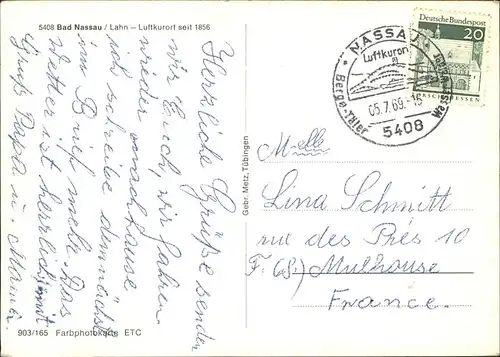 5408 Bad Nassau / Lahn – Luftkurort seit 1856
Herzliche Grüße senden
wir Euch, wir fahren
wieder nach Hause
ich schreibe demnächst
im Brief mehr. Das
Wetter ist herrlich
Gruß Papa u. Mama.
903/165 Farbphotokarte ETC
Gebr. Metz, Tübingen
NASSAU
Luftkurort
Berge-Täler
Wasser
05.7.69.-16
5408
Deutsche Bundespost
20
Melle
Lina Schmitt
rue des Près 10
Mulhouse
France.